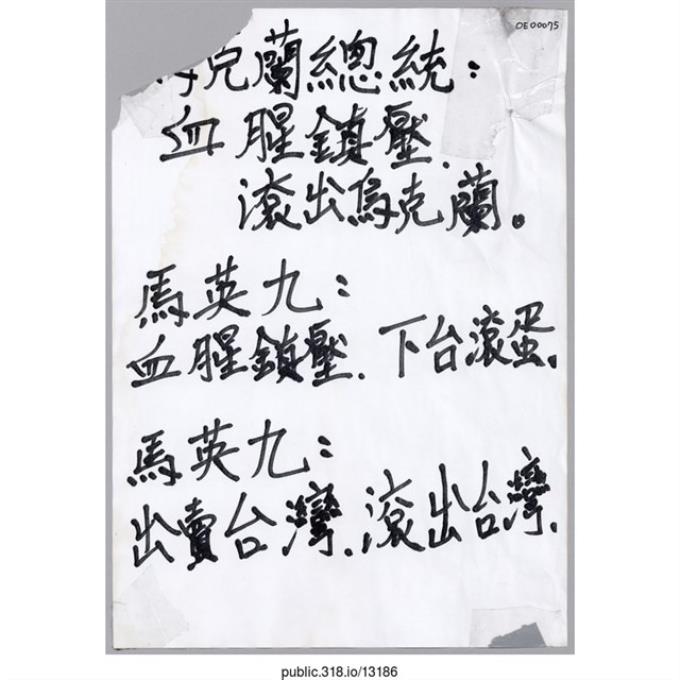 OE00075
烏克蘭總統：
血腥鎮壓.
滾出烏克蘭。
馬英九：
血腥鎮壓. 下台滾蛋.
馬英九：
出賣台灣. 滾出台灣.
public.318.io/13186